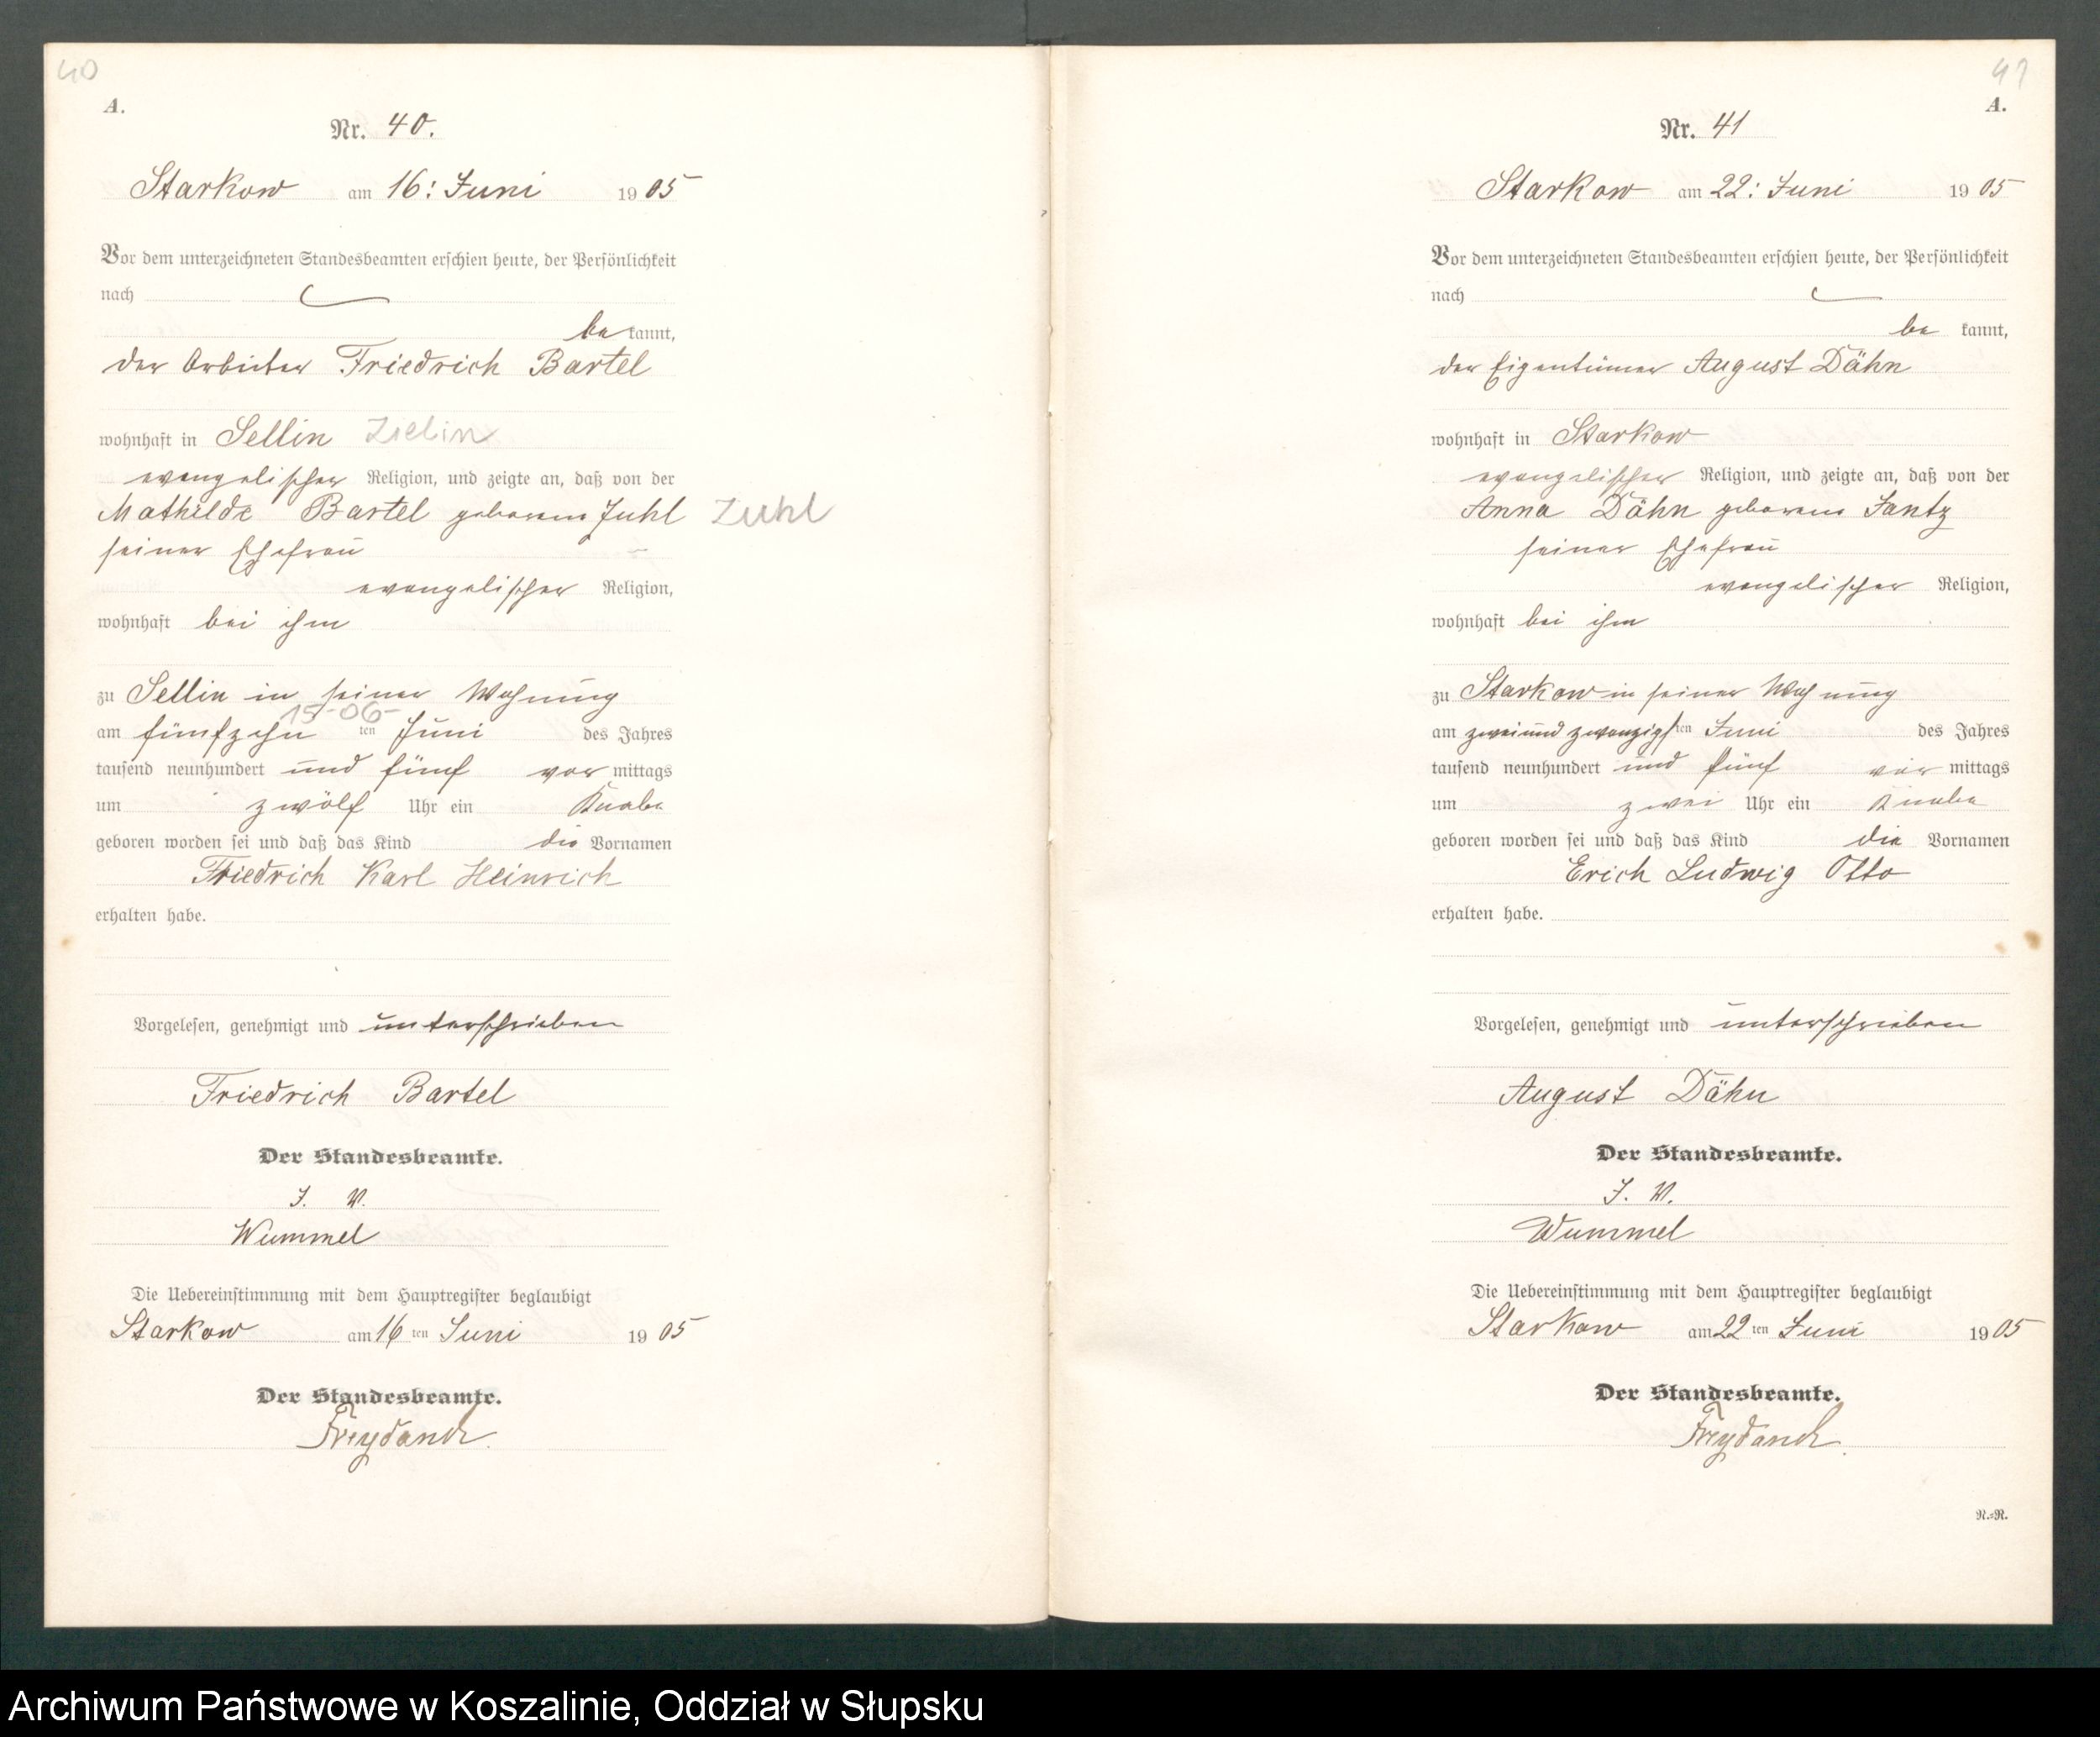 40
A.
Nr. 40.
Starkow am 16: Juni 1905
Vor dem unterzeichneten Standesbeamten erschien heute, der Persönlichkeit
nach
bekannt,
der Arbeiter Friedrich Bartel
wohnhaft in Sellin Zielin
evangelischer Religion, und zeigte an, daß von der
Mathilde Bartel geborene Zuhl Zuhl
seiner Ehefrau
evangelischer Religion,
wohnhaft bei ihm
zu Sellin in seiner Wohnung
15-06-
am fünfzehn ten Juni des Jahres
tausend neunhundert und fünf vor mittags
um zwölf Uhr ein Knabe
geboren worden sei und daß das Kind die Vornamen
Friedrich Karl Heinrich
erhalten habe.
Vorgelesen, genehmigt und unterschrieben
Friedrich Bartel
Der Standesbeamte.
J. V.
Wummel
Die Uebereinstimmung mit dem Hauptregister beglaubigt
Starkow am 16 ten Juni 1905
Der Standesbeamte.
Freydanck.
41
A.
Nr. 41
Starkow am 22: Juni 1905
Vor dem unterzeichneten Standesbeamten erschien heute, der Persönlichkeit
nach
be kannt,
der Eigentümer August Dähn
wohnhaft in Starkow
evangelischer Religion, und zeigte an, daß von der
Anna Dähn geborene Jantz
seiner Ehefrau
evangelischer Religion,
wohnhaft bei ihm
zu Starkow in seiner Wohnung
am zweiund zwanzigsten Juni des Jahres
tausend neunhundert und fünf vor mittags
um zwei Uhr ein Knabe
geboren worden sei und daß das Kind die Vornamen
Erich Ludwig Otto
erhalten habe.
Vorgelesen, genehmigt und unterschrieben
August Dähn
Der Standesbeamte.
J. V.
Wummel
Die Uebereinstimmung mit dem Hauptregister beglaubigt
Starkow am 22 ten Juni 1905
Der Standesbeamte.
Freydanck.
N.=R.
Archiwum Państwowe w Koszalinie, Oddział w Słupsku